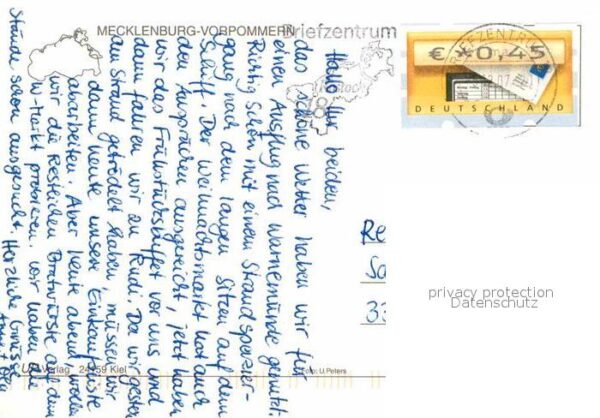 MECKLENBURG-VORPOMMERN
Briefzentrum
18
BRIEFZENTRUM
€*0,45
DEUTSCHLAND
Hallo Ihr beiden,
das schöne Wetter haben wir für
einen Ausflug nach Warnemünde genutzt.
Richtig schön mit einem Strandspazier-
gang nach dem langen Sitzen auf dem
Schiff. Der Weihnachtsmarkt hat auch
den Ansprüchen ausgereicht, jetzt haben
wir das Frühstücksbüffet vor uns und
dann fahren wir zu Rudi. Da wir gestern
am Strand getrödelt haben, müssen wir
dann heute unsere Einkaufsliste
abarbeiten. Aber heute abend wollen
wir die Restlichen Bratwürste auf dem
W-Markt probieren. Wir haben die
Stände schon ausgesucht. Herzliche Grüsse
Re
So
33
privacy protection
Datenschutz
Verlag 24159 Kiel
Foto: U. Peters